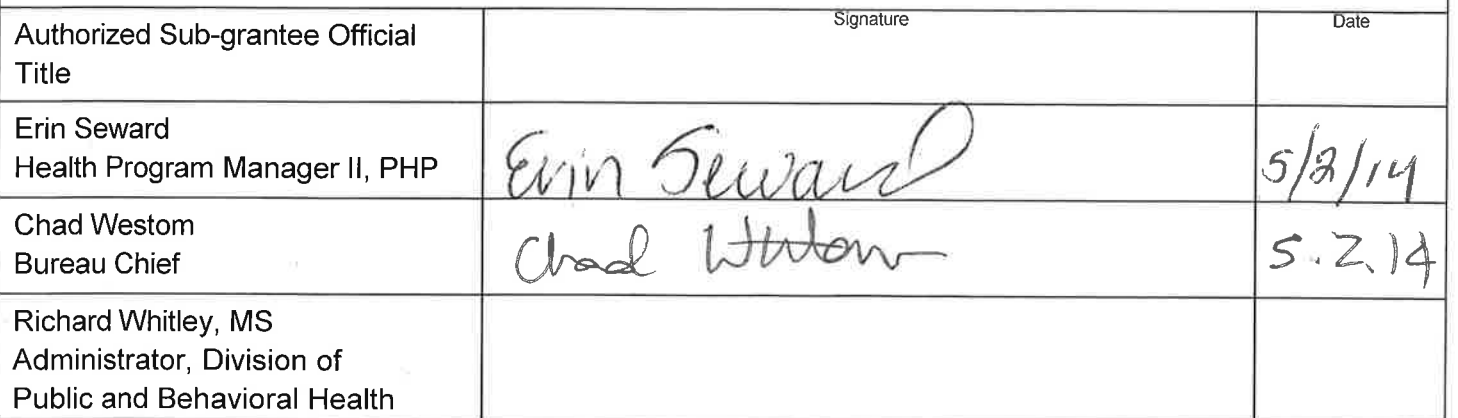 Signature
Date
Authorized Sub-grantee Official
Title
Erin Seward
Health Program Manager II, PHP
Erin Seward
5/2/14
Chad Westom
Bureau Chief
Chad Westom
5.2.14
Richard Whitley, MS
Administrator, Division of
Public and Behavioral Health